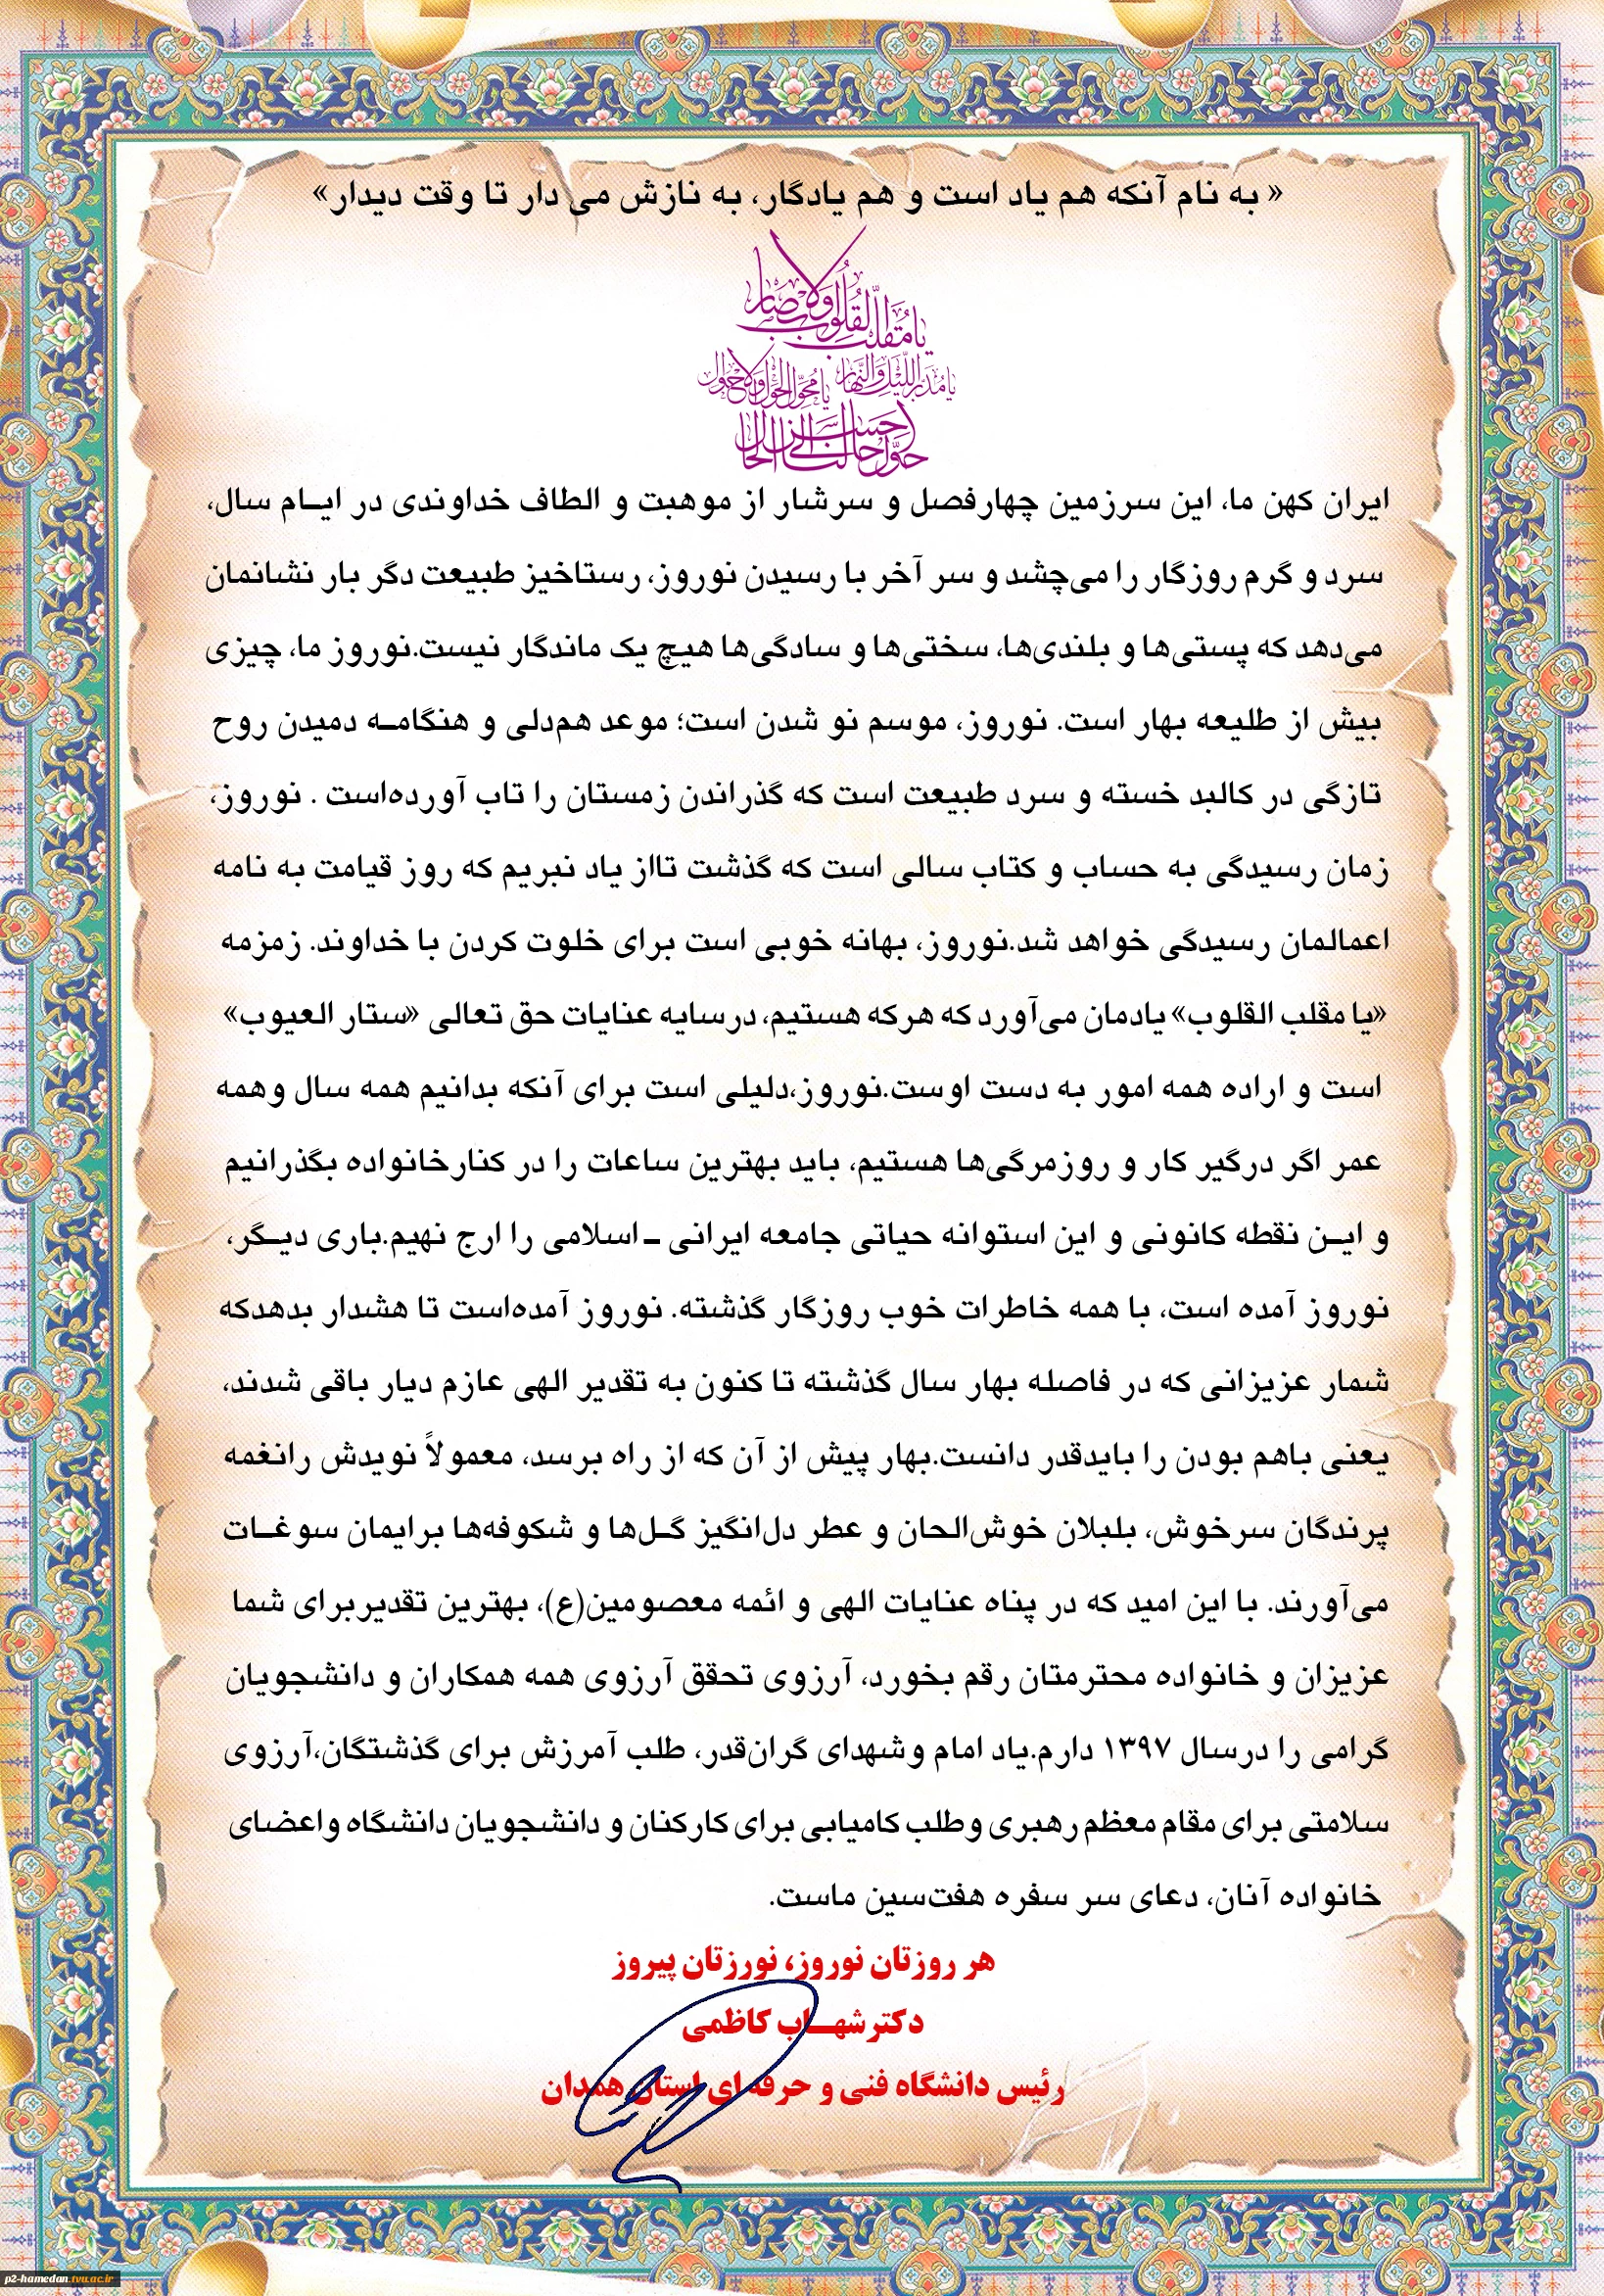 « به نام آنکه هم یاد است و هم یادگار، به نازش می دار تا وقت دیدار»
یا مُقَلِّبَ القُلُوبِ وَالاَبصَار
یا مُدَبِّرَ اللَّیلِ وَالنَّهَار یا مُحَوِّلَ الحَولِ وَالاَحوال
حَوِّل حالَنا اِلی اَحسَنِ الحَال
ایران کهن ما، این سرزمین چهارفصل و سرشار از موهبت و الطاف خداوندی در ایـام سال،
سرد و گرم روزگار را می‌چشد و سر آخر با رسیدن نوروز، رستاخیز طبیعت دگر بار نشانمان
می‌دهد که پستی‌ها و بلندی‌ها، سختی‌ها و سادگی‌ها هیچ یک ماندگار نیست.نوروز ما، چیزی
بیش از طلیعه بهار است. نوروز، موسم نو شدن است؛ موعد هم‌دلی و هنگامـه دمیدن روح
تازگی در کالبد خسته و سرد طبیعت است که گذراندن زمستان را تاب آورده‌است . نوروز،
زمان رسیدگی به حساب و کتاب سالی است که گذشت تااز یاد نبریم که روز قیامت به نامه
اعمالمان رسیدگی خواهد شد.نوروز، بهانه خوبی است برای خلوت کردن با خداوند. زمزمه
«یا مقلب القلوب» یادمان می‌آورد که هرکه هستیم، درسایه عنایات حق تعالی «ستار العیوب»
است و اراده همه امور به دست اوست.نوروز،دلیلی است برای آنکه بدانیم همه سال وهمه
عمر اگر درگیر کار و روزمرگی‌ها هستیم، باید بهترین ساعات را در کنارخانواده بگذرانیم
و ایـن نقطه کانونی و این استوانه حیاتی جامعه ایرانی ـ اسلامی را ارج نهیم.باری دیـگر،
نوروز آمده است، با همه خاطرات خوب روزگار گذشته. نوروز آمده‌است تا هشدار بدهدکه
شمار عزیزانی که در فاصله بهار سال گذشته تا کنون به تقدیر الهی عازم دیار باقی شدند،
یعنی باهم بودن را بایدقدر دانست.بهار پیش از آن که از راه برسد، معمولاً نویدش رانغمه
پرندگان سرخوش، بلبلان خوش‌الحان و عطر دل‌انگیز گـل‌ها و شکوفه‌ها برایمان سوغـات
می‌آورند. با این امید که در پناه عنایات الهی و ائمه معصومین(ع)، بهترین تقدیربرای شما
عزیزان و خانواده محترمتان رقم بخورد، آرزوی تحقق آرزوی همه همکاران و دانشجویان
گرامی را درسال ۱۳۹۷ دارم.یاد امام وشهدای گران‌قدر، طلب آمرزش برای گذشتگان،آرزوی
سلامتی برای مقام معظم رهبری وطلب کامیابی برای کارکنان و دانشجویان دانشگاه واعضای
خانواده آنان، دعای سر سفره هفت‌سین ماست.
هر روزتان نوروز، نورزتان پیروز
دکترشهـاب کاظمی
رئیس دانشگاه فنی و حرفه ای استان همدان
p2-hamedan.tvu.ac.ir